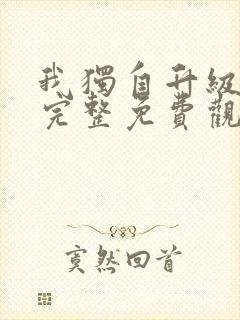 我獨自升級
完整免費觀
寞然回首